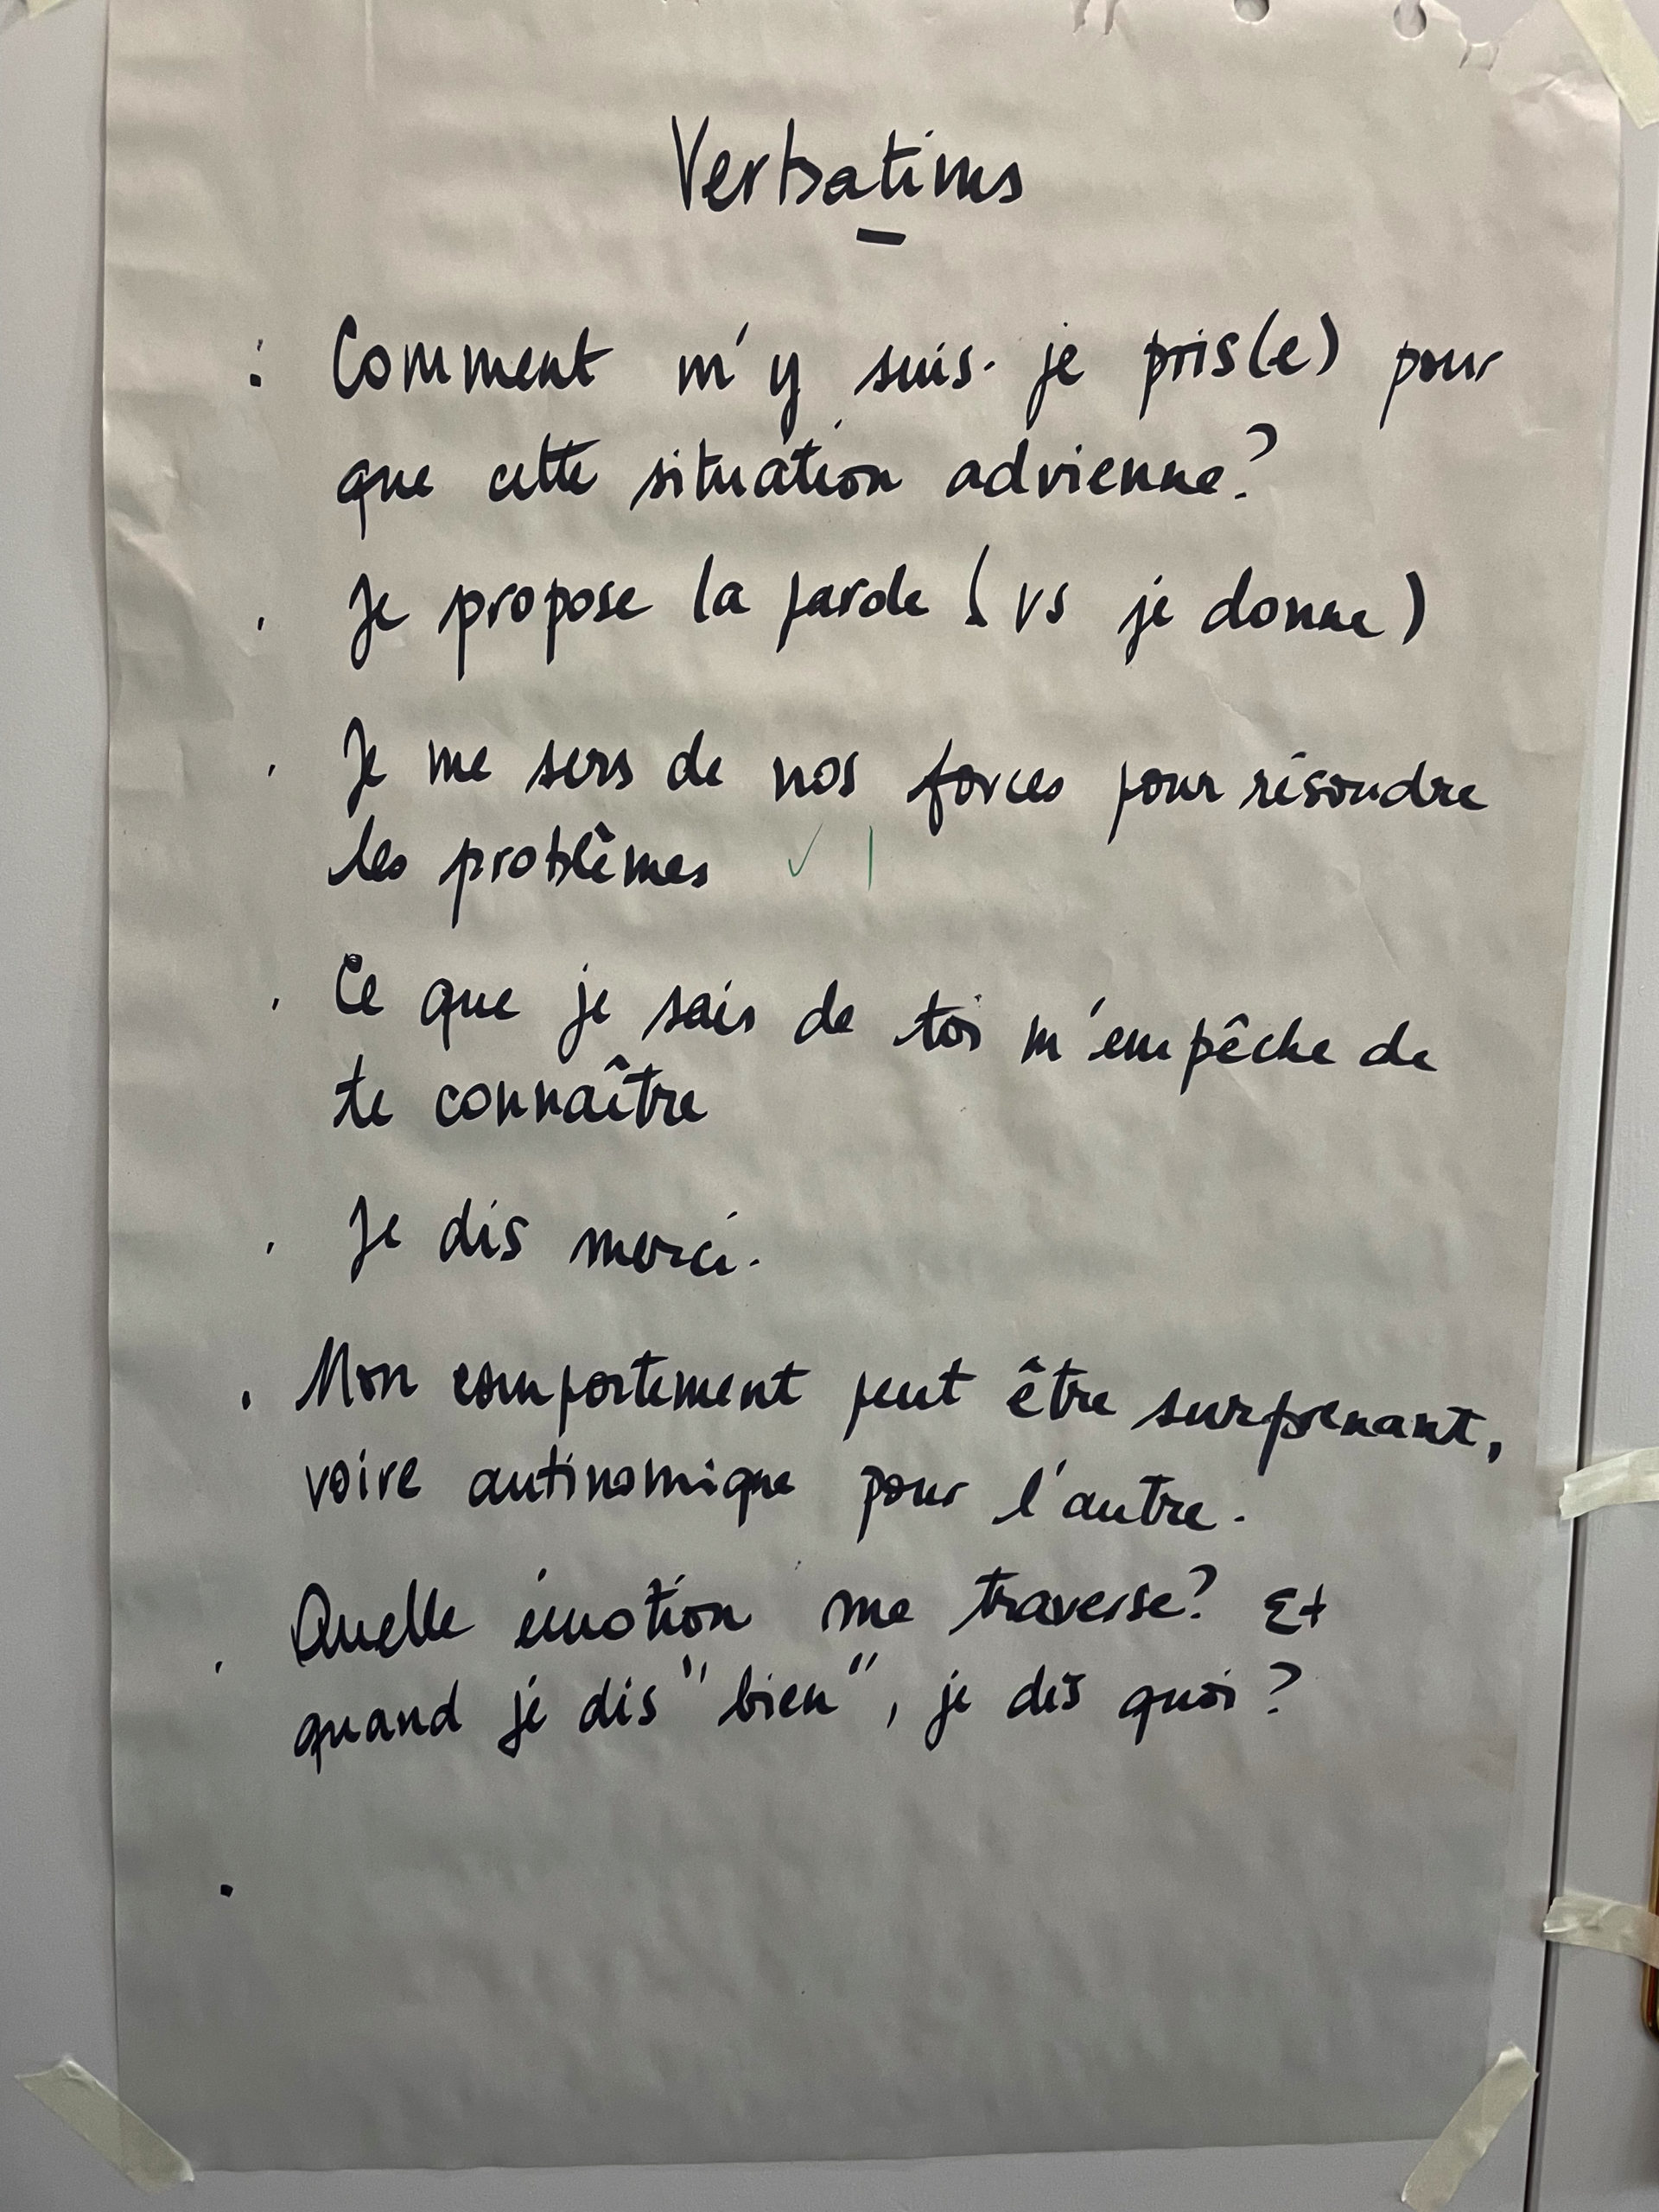 Verbatims
: Comment m'y suis-je pris(e) pour
que cette situation advienne?
. Je propose la parole (vs je donne)
. Je me sers de nos forces pour résoudre
les problèmes ✓ |
. Ce que je sais de toi m'empêche de
te connaître
. Je dis merci.
. Mon comportement peut être surprenant,
voire antinomique pour l'autre.
. Quelle émotion me traverse? Et
quand je dis "bien", je dis quoi?
.